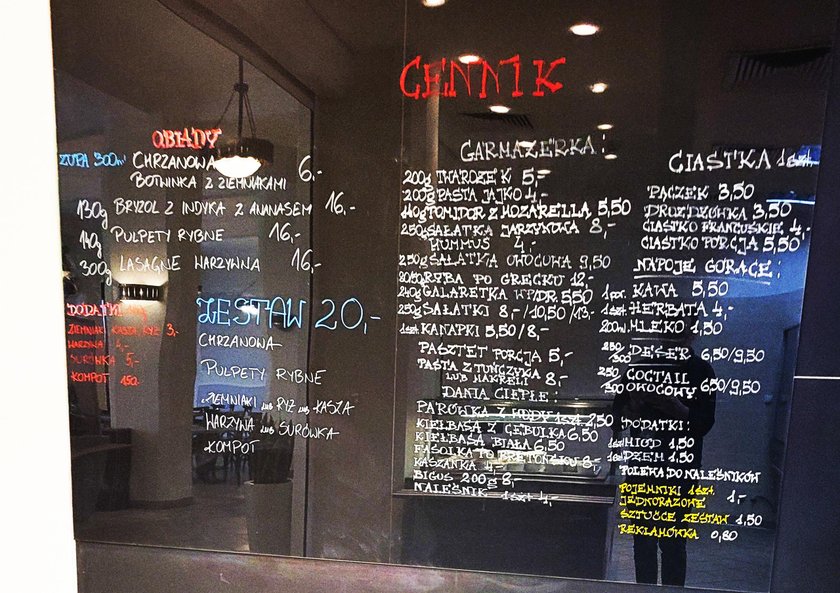 CENNIK
OBIADY
ZUPA 300ml CHRZANOWA 6.-
BOTWINKA Z ZIEMNIAKAMI
130g BRYZOL Z INDYKA Z ANANASEM 16.-
140g PULPETY RYBNE 16.-
300g LASAGNE WARZYWNA 16,-
DODATKI
ZIEMNIAKI KASZA RYŻ 3,-
WARZYWA 4,-
SURÓWKA 5,-
KOMPOT 150.-
ZESTAW 20,-
CHRZANOWA
PULPETY RYBNE
ZIEMNIAKI LUB RYŻ LUB KASZA
WARZYWA LUB SURÓWKA
KOMPOT
GARMAŻERKA:
200g TWAROŻEK 5,-
200g PASTA JAJKO 4,-
140g POMIDOR Z MOZARELLĄ 5,50
250g SAŁATKA JARZYNOWA 8,-
HUMMUS 4,-
250g SAŁATKA OWOCOWA 9,50
RYBA PO GRECKU 12,-
240g GALARETKA WP/DR. 5,50
250g SAŁATKI 8,-/10,50/13,-
1szt KANAPKI 5,50/8,-
PASZTET PORCJA 5,-
PASTA Z TUŃCZYKA
LUB MAKRELI 8,-
DANIA CIEPŁE:
PARÓWKA Z WODY 1szt 2,50
KIEŁBASA Z CEBULKĄ 6,50
KIEŁBASA BIAŁA 6,50
FASOLKA PO BRETOŃSKU 8,-
KASZANKA
BIGOS 200g 8,-
NALEŚNIK 1szt 4,-
CIASTKA 1szt.
PĄCZEK 3,50
DROŻDŻÓWKA 3,50
CIASTKO FRANCUSKIE 4,-
CIASTKO PORCJA 5,50
NAPOJE GORĄCE:
1por. KAWA 5,50
1szt HERBATA 4,-
200ml MLEKO 1,50
250/300 DESER 6,50/9,50
250/300 COCTAIL
OWOCOWY 6,50/9,50
DODATKI:
1szt MIÓD 1,50
1szt DŻEM 1,50
POLEWA DO NALEŚNIKÓW
POJEMNIKI 1szt.
JEDNORAZOWE 1,-
SZTUĆCE ZESTAW 1,50
REKLAMÓWKA 0,80